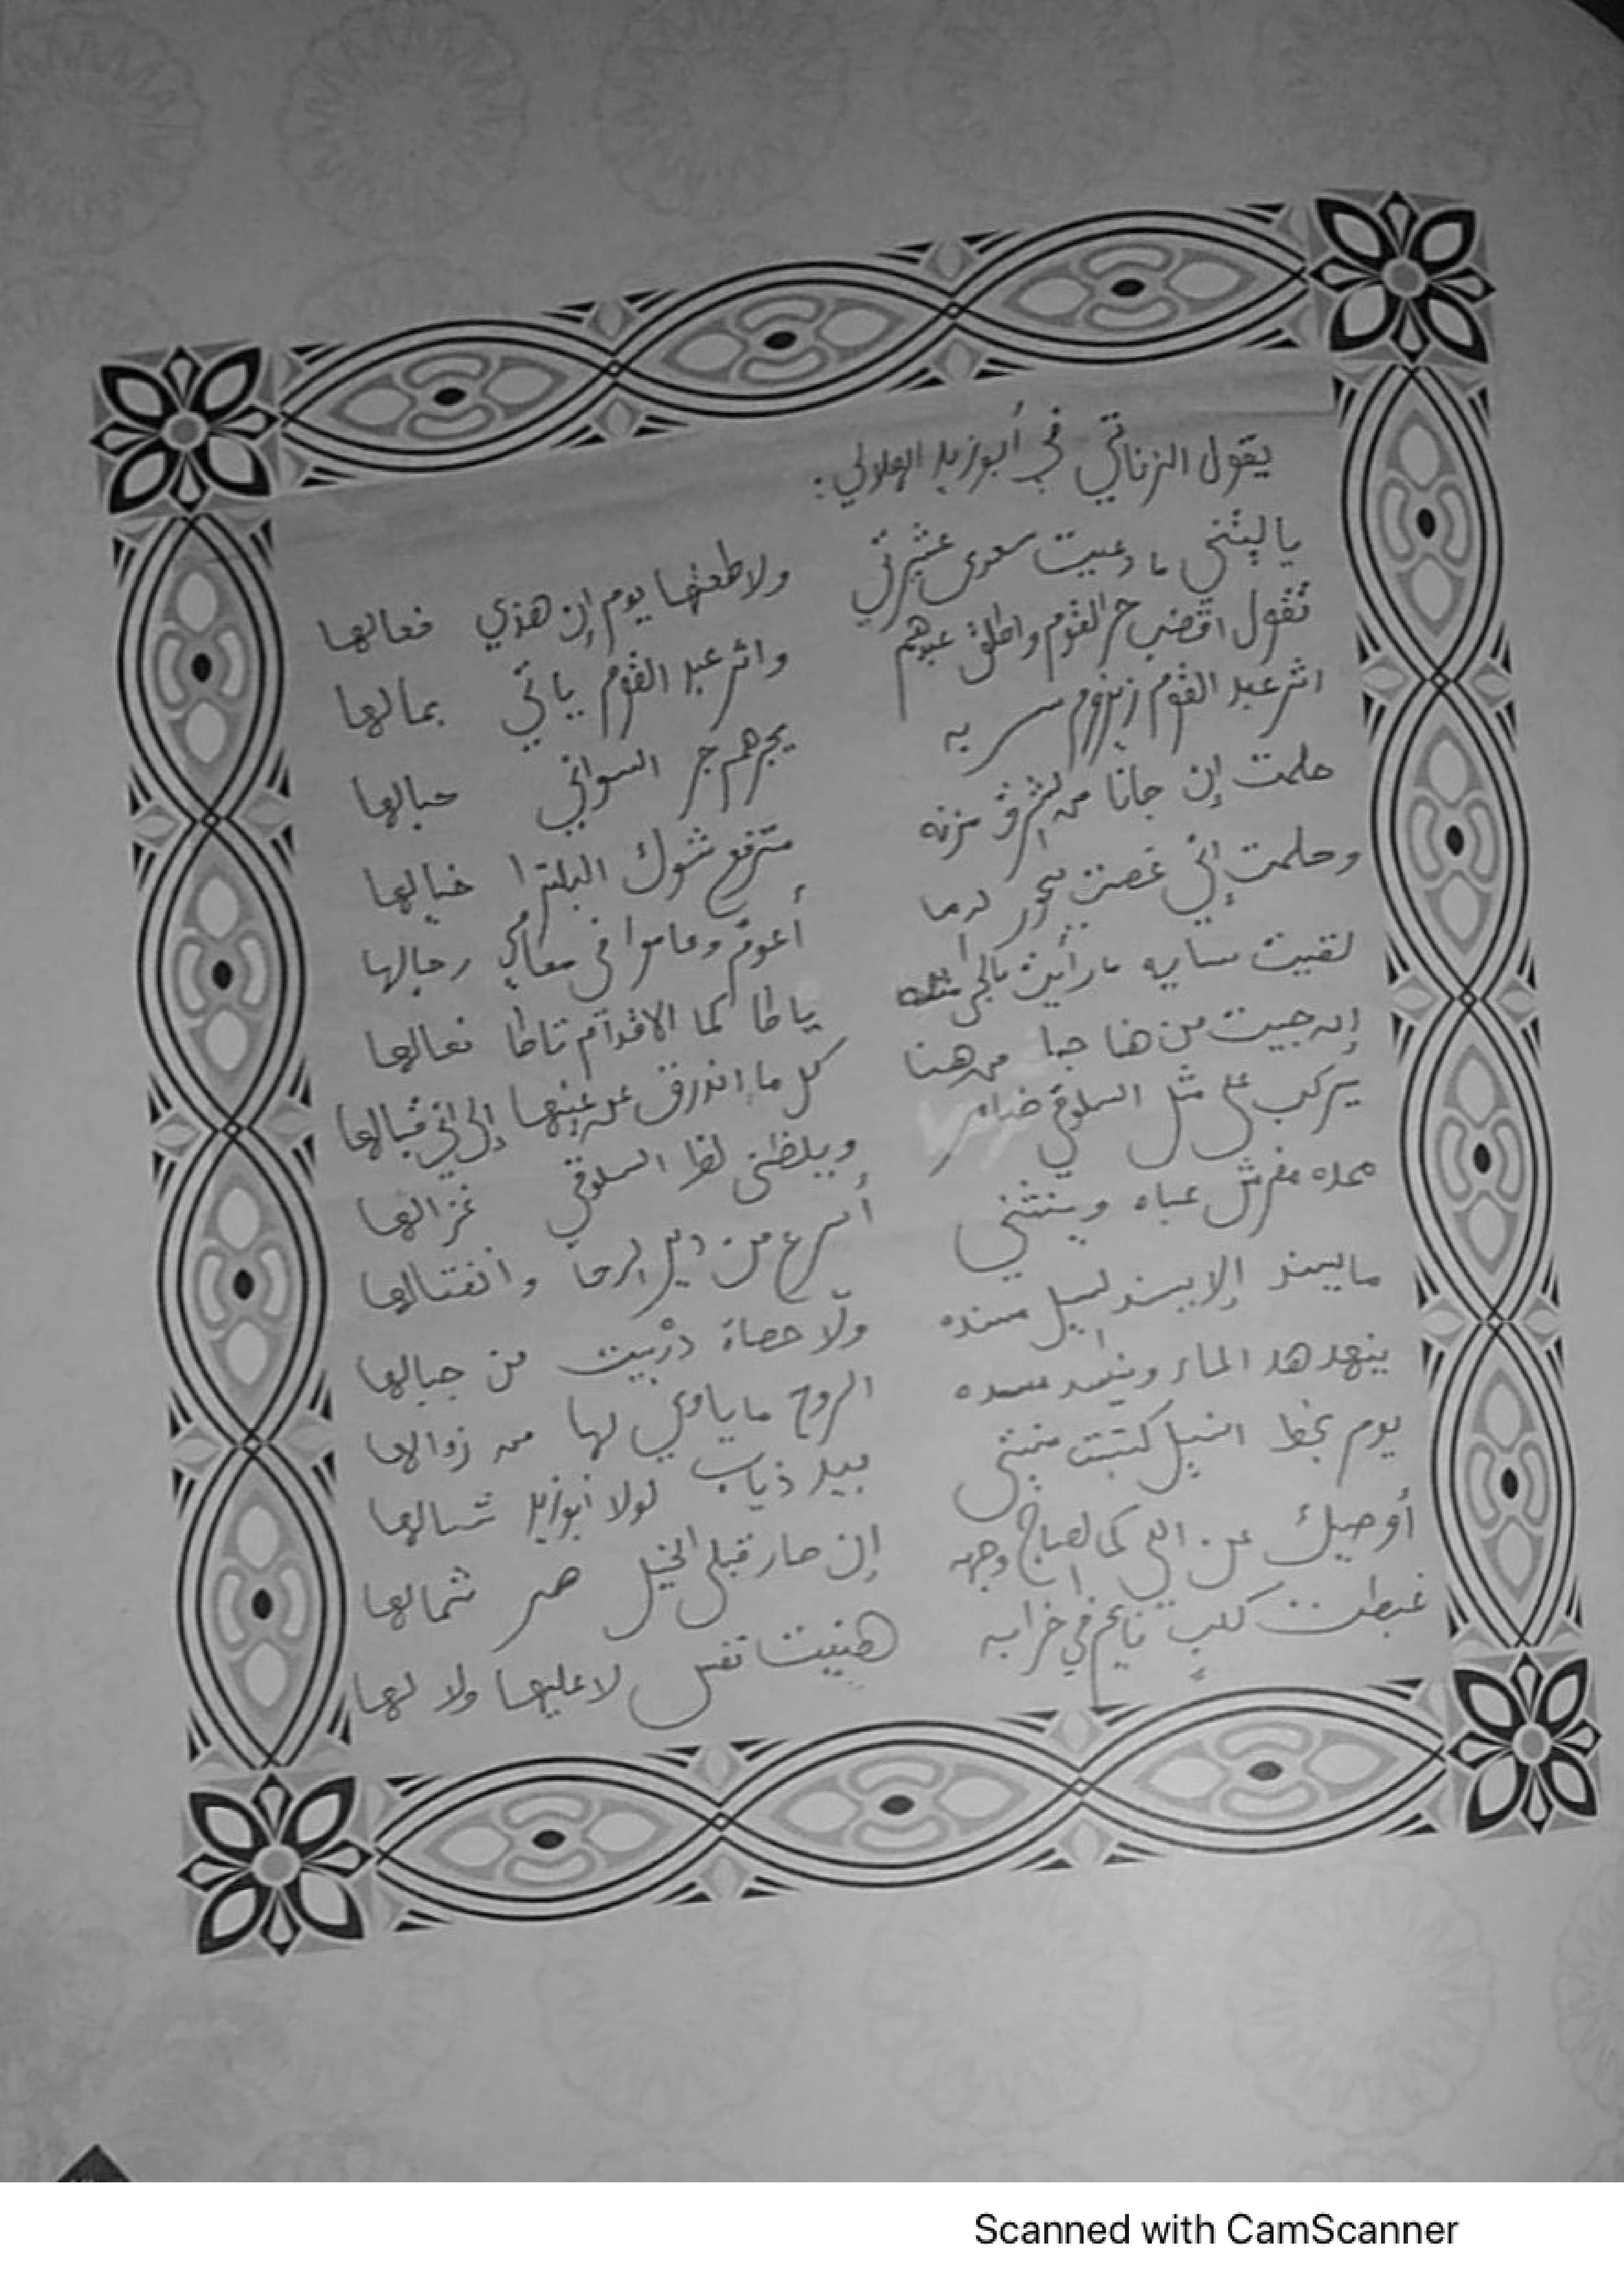 يقول الزناتي في أبو زيد الهلالي:
ياليتني ما دعيت سعدى عشيرتي ولا طعتها يوم إن هذي فعالها
تقول اقضب حر القوم واطلق عبدهم واثر عبد القوم ياتي بمالها
اثر عبد القوم زيزوم سربه يجرهم جر السواني حبالها
حلمت إن جانا من الشرق مزنه مترفع شوك خيالها
وحلمت إني غصت بحور لدما أعوم وعاموا في رجالها
لقيت ما رأيت ياطا كما الاقدام تاطا نعالها
إن جيت من هنا جا من هنا كل ما انذرق عن عينها إلى إني قبالها
يركب على مثل السلوقي ضامر ويلظني لظ السلوقي غزالها
مفرش عباه وينثني أسرع من دير الرحا وانفتالها
ما يسند إلا بيسند لسيل مسنده ولا حصاة درْبيت من جبالها
ينهد هد الماء الروح ما ياوي لها من زوالها
يوم كتبت منيتي بيد ذياب لولا أبو زيد شالها
أوصيك عن اللي كما لصباح وجهه إن صار قبلي الخيل صر شمالها
غبطت كلبٍ نايم في خرابه هنيت نفس لا عليها ولا لها
Scanned with CamScanner